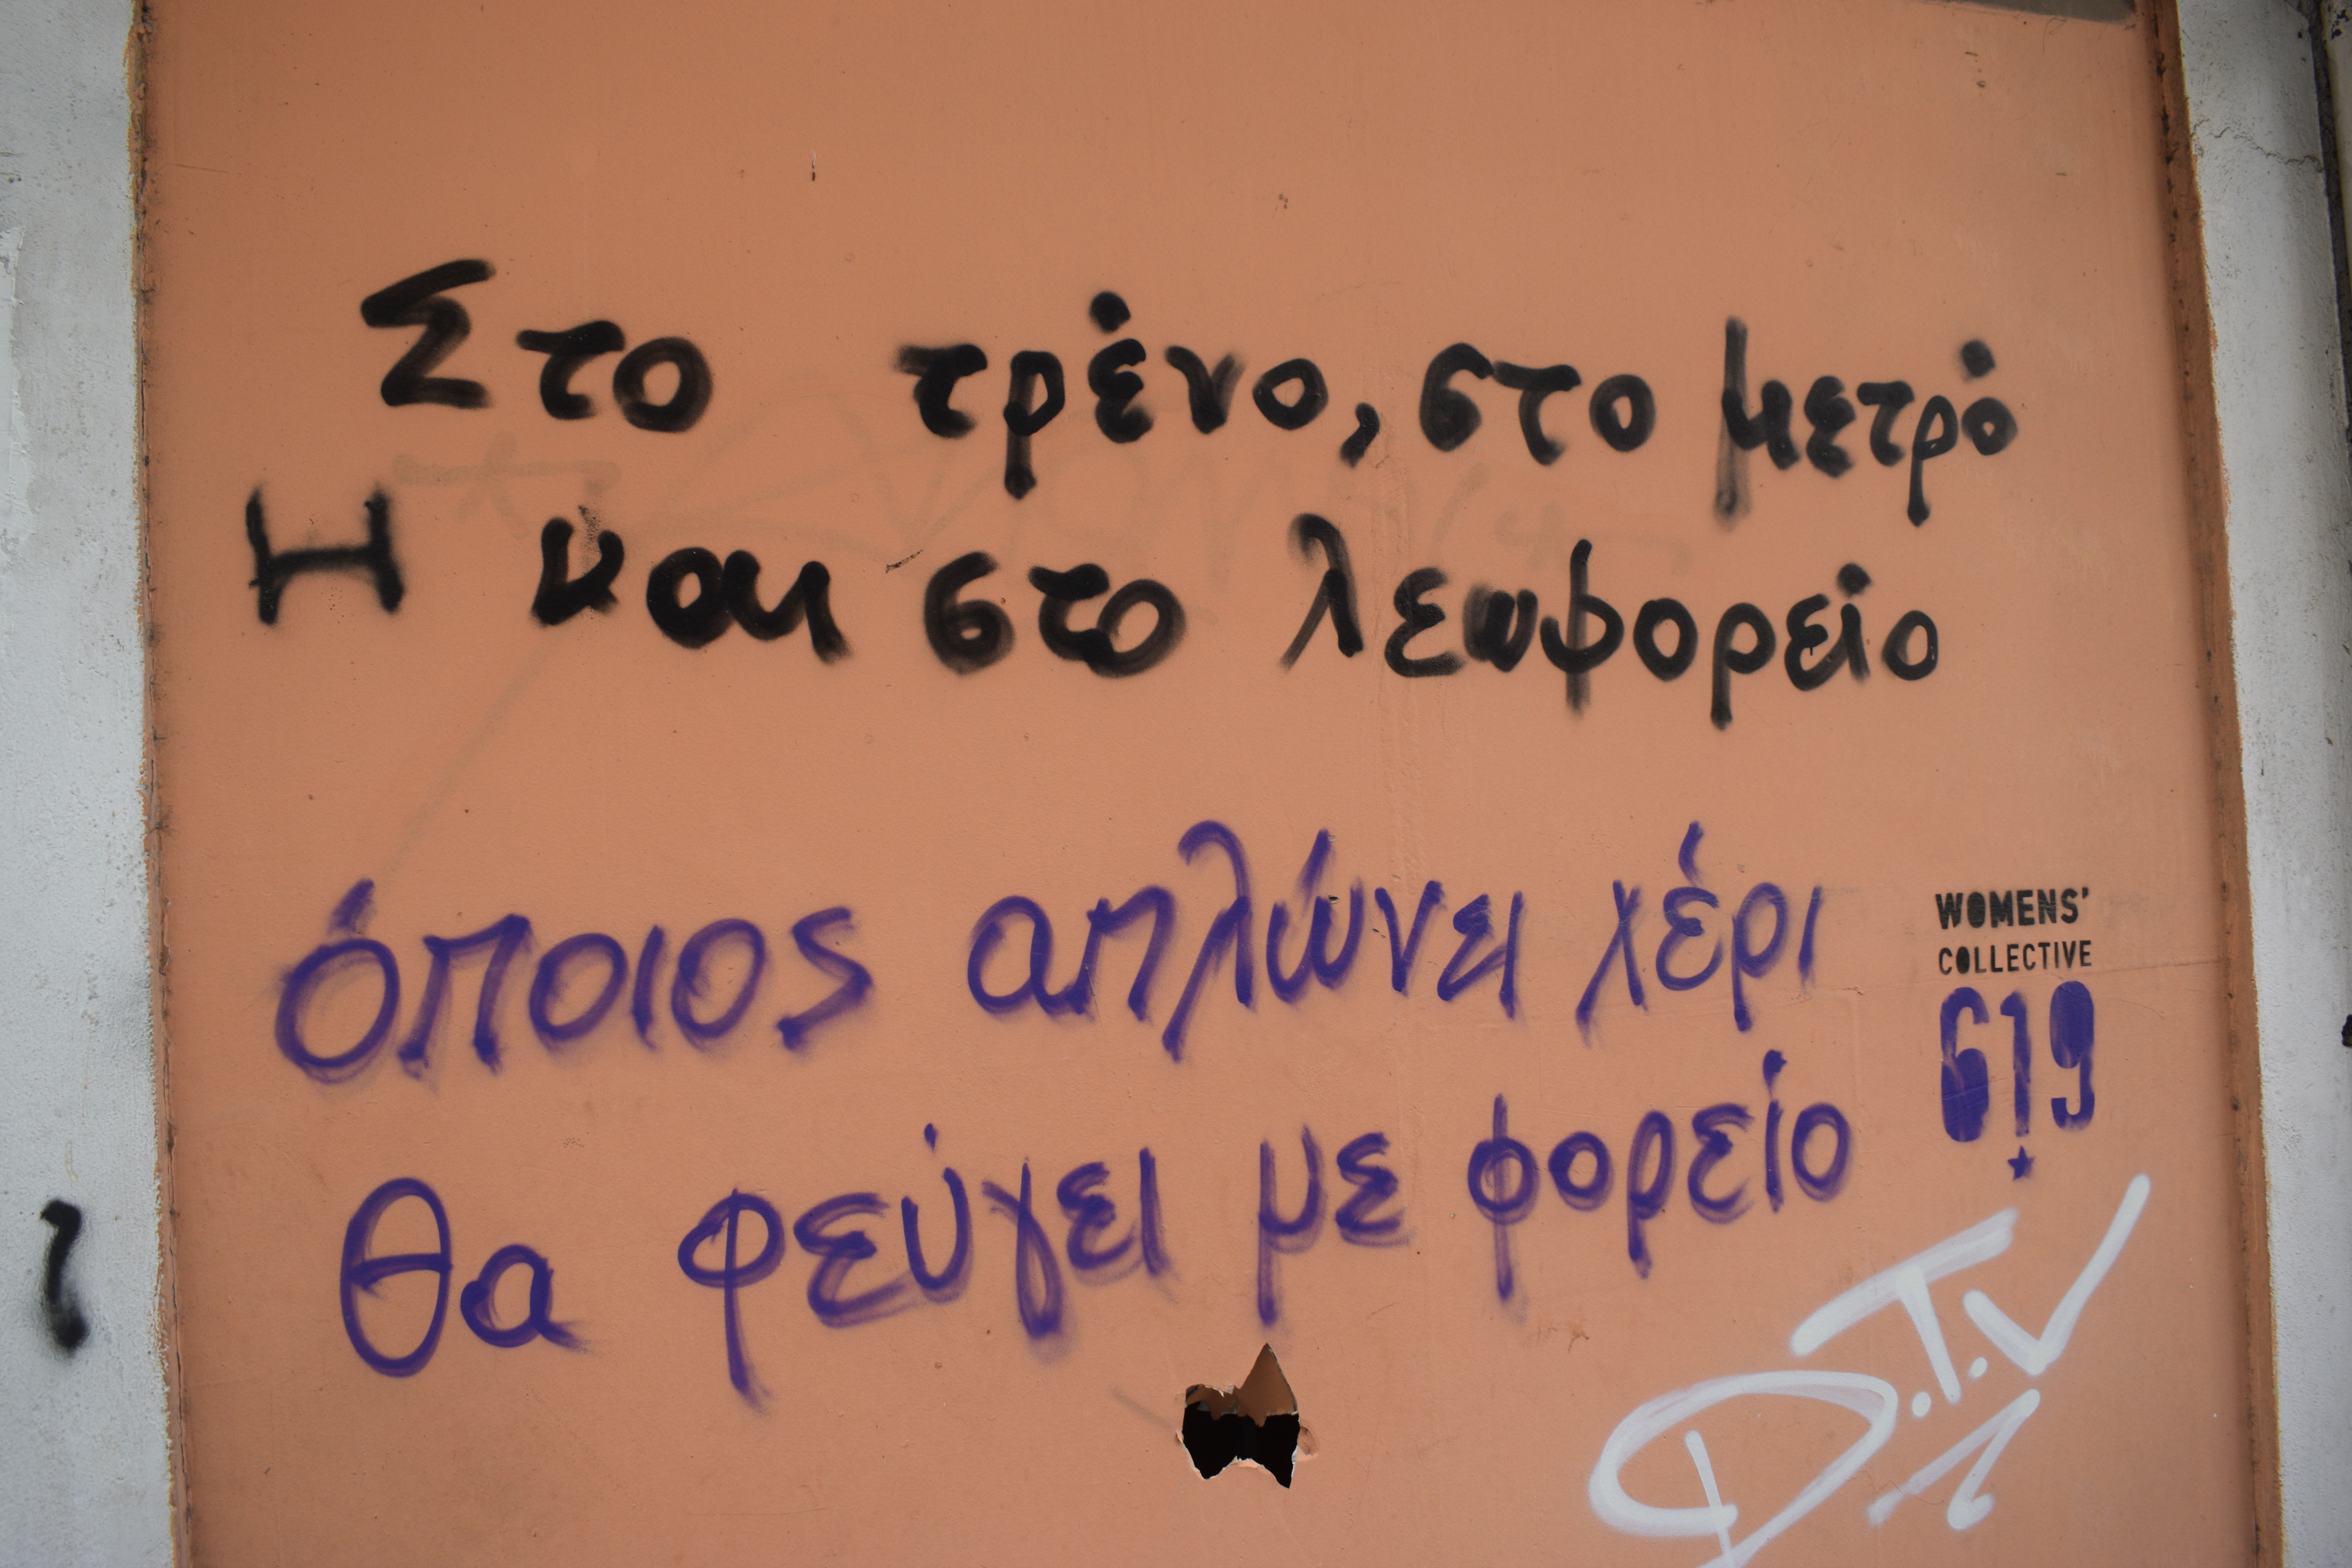 Στο τρένο, στο μετρό
Η και στο λεωφορείο
όποιος απλώνει χέρι
θα φεύγει με φορείο
WOMENS'
COLLECTIVE
619
D.T.V